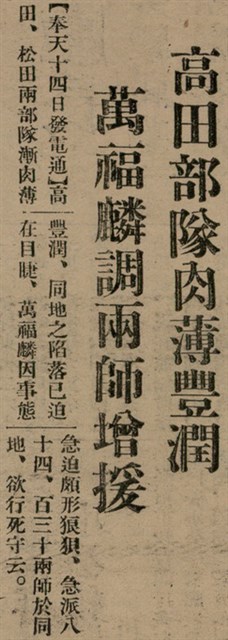 高田部隊肉薄豐潤
萬福麟調兩師增援
【奉天十四日發電通】高
田、松田兩部隊漸肉薄
豐潤、同地之陷落已迫
在目睫、萬福麟因事態
急迫頗形狼狽、急派八
十四、百三十兩師於同
地、欲行死守云。